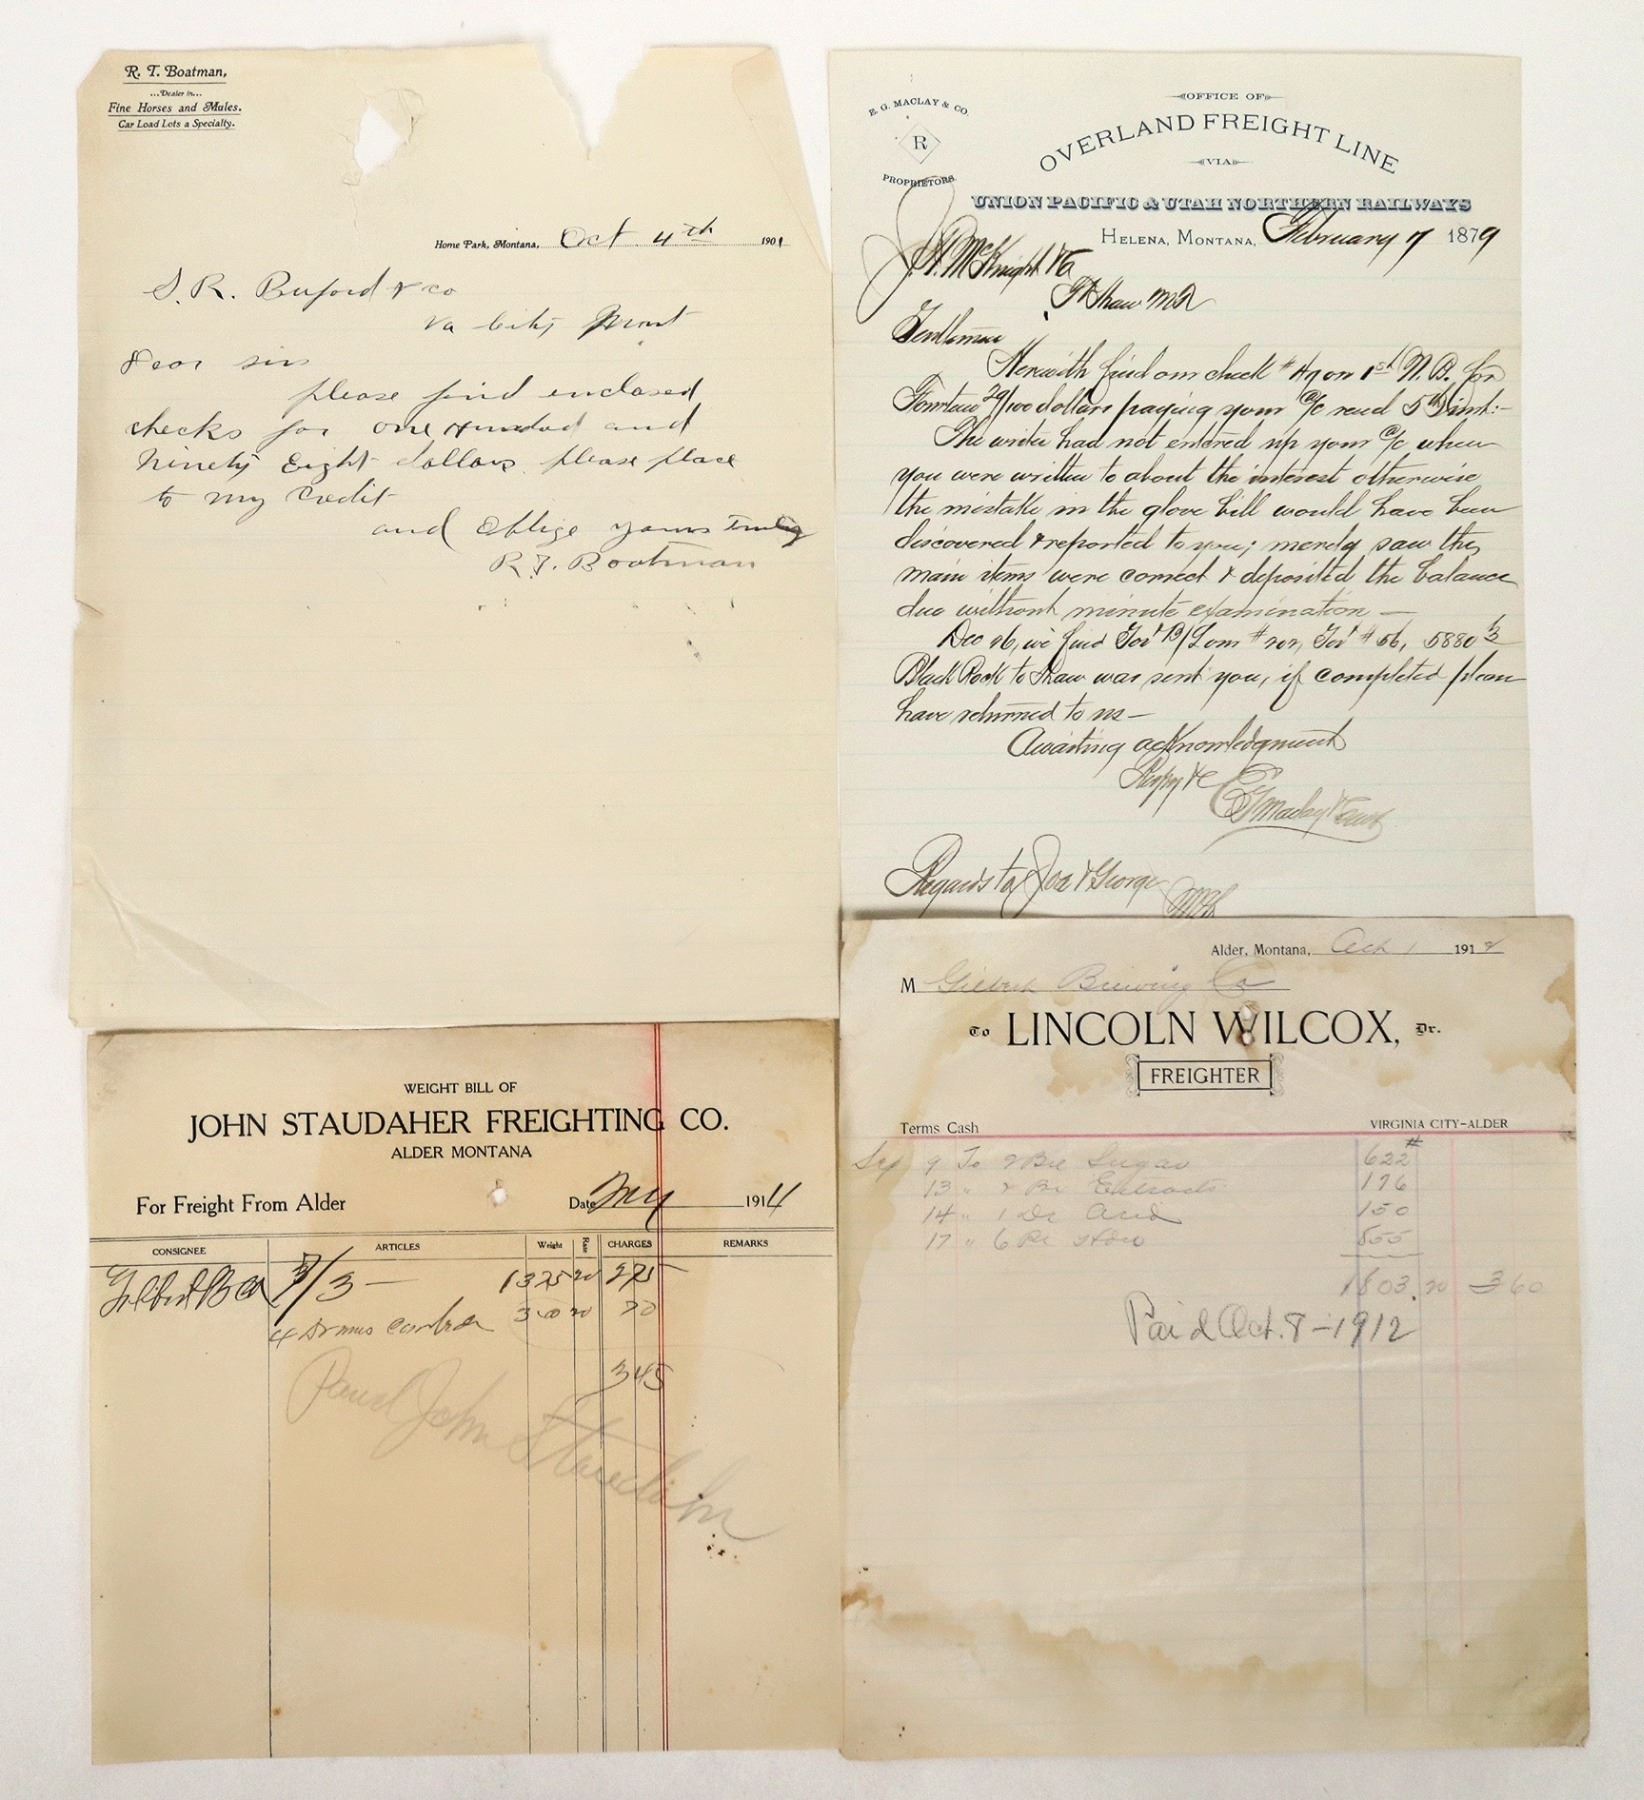 R. T. Boatman,
...Dealer in...
Fine Horses and Mules.
Car Load Lots a Specialty.
Home Park, Montana, Oct 4th 1901
S. R. Buford & co
Va City Mont
Dear sir
please find enclosed
checks for one Hundred and
Ninety Eight dollars please place
to my Credit
and Oblige yours truly
R. T. Boatman
E. G. MACLAY & CO.
R
PROPRIETORS.
OFFICE OF
OVERLAND FREIGHT LINE
VIA
UNION PACIFIC & UTAH NORTHERN RAILWAYS
HELENA, MONTANA, February 17 1879
J. H. McKnight & Co
Ft Shaw M.T.
Gentlemen
Herewith find our check # on 1st N. B. for
Fourteen 29/100 dollars paying your a/c rend 5th inst:-
The writer had not entered up your a/c when
you were written to about the interest otherwise
the mistake in the glove bill would have been
discovered & reported to you; merely saw the
main items were correct & deposited the balance
due without minute examination —
Dec 26, we find Gov't B/L our # Gov't # 56, 5880
Black Rock to Shaw was sent you, if completed please
have returned to us —
Awaiting acknowledgment
Respy &c
E G Maclay & Co
Regards to Joe & George
WEIGHT BILL OF
JOHN STAUDAHER FREIGHTING CO.
ALDER MONTANA
For Freight From Alder Date May 1914
CONSIGNEE ARTICLES Weight Rate CHARGES REMARKS
Gilbert B Co 7/3 — 1375 20 275
4 Drums 350 20 70
345
Paid John Staudaher
Alder, Montana, Oct 1 1912
M Gilbert Brewing Co
To LINCOLN WILCOX, Dr.
FREIGHTER
Terms Cash VIRGINIA CITY-ALDER
Sep 9 To 2 Bbl Sugar 622#
13 " 2 Bx Extracts 176
14 " 1 Dr Acid 150
17 " 6 855
1803. 20 3 60
Paid Oct. 8 - 1912